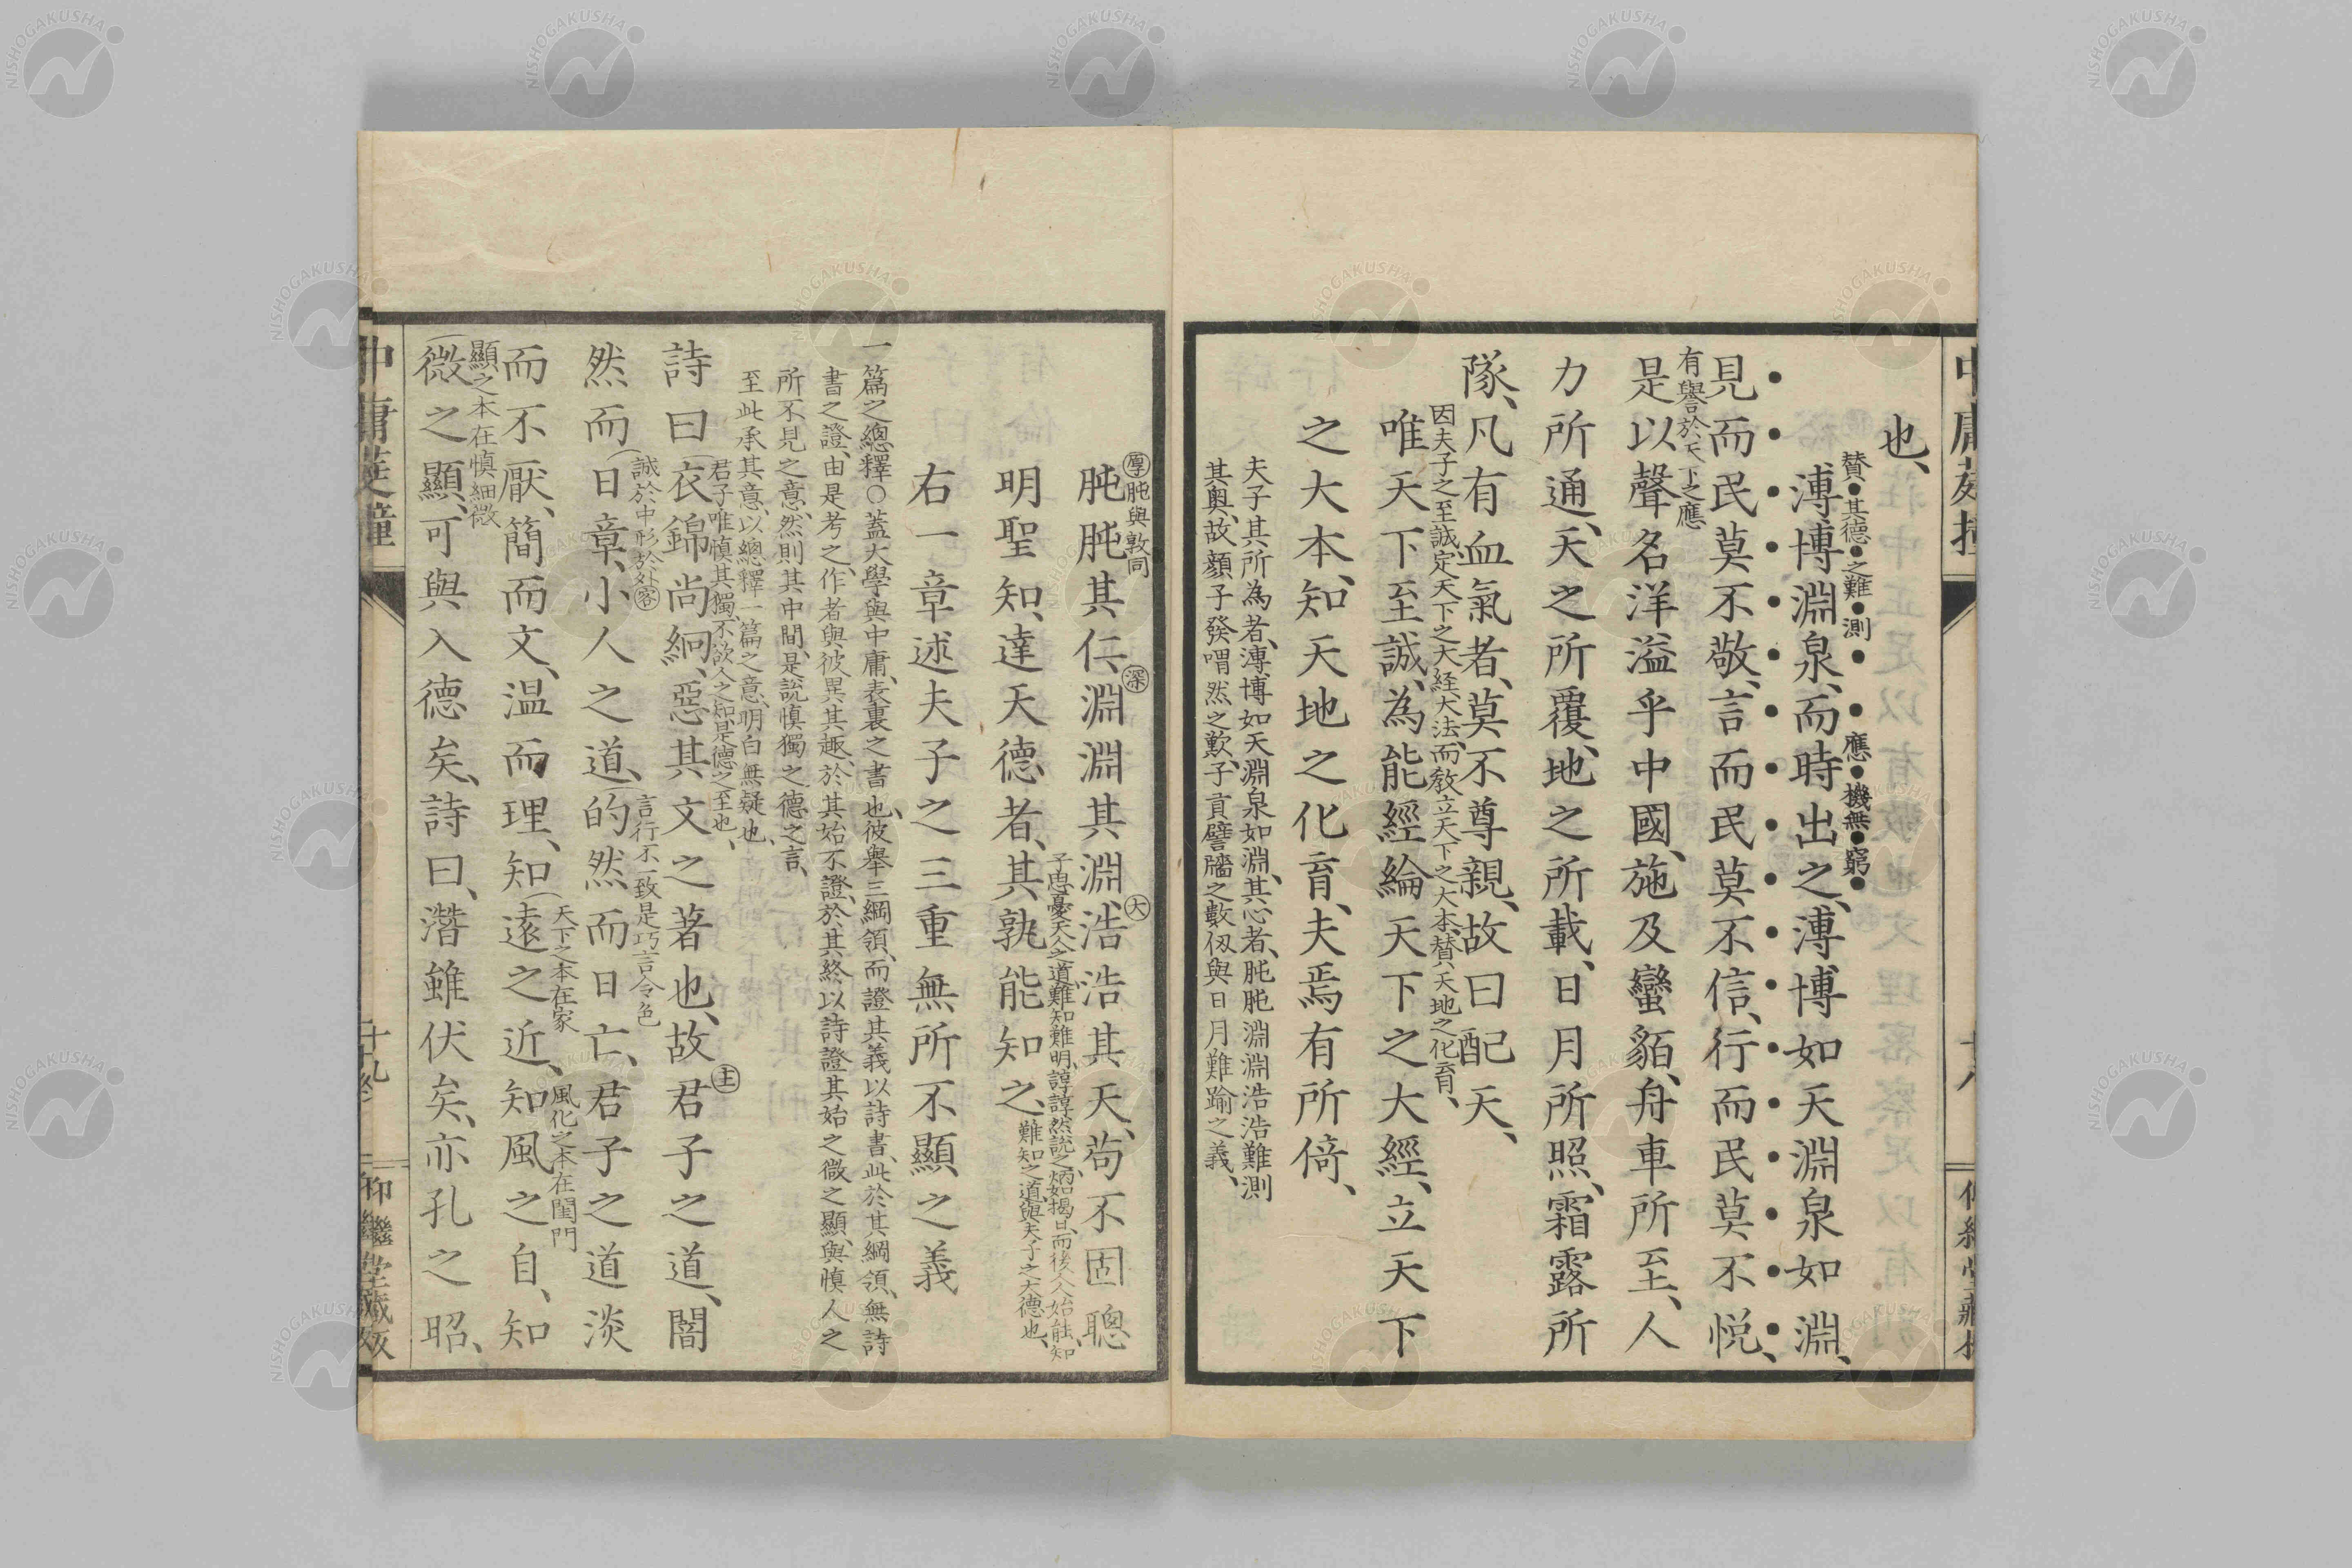 也、
賛其德之難測應機無窮
溥博淵泉、而時出之、溥博如天淵泉如淵、
見而民莫不敬、言而民莫不信、行而民莫不悅、
有譽於天下之應
是以聲名洋溢乎中國、施及蠻貊、舟車所至、人
力所通、天之所覆、地之所載、日月所照、霜露所
隊、凡有血氣者、莫不尊親、故曰配天、
因夫子之至誠定天下之大経大法、而敎立天下之大本、賛天地之化育、
唯天下至誠、為能經綸天下之大經、立天下
之大本、知天地之化育、夫焉有所倚、
夫子其所為者、溥博如天淵泉如淵、其心者、肫肫淵淵浩浩難測
其奥、故顔子發喟然之歎、子貢譬牆之數仭與日月難踰之義、
厚 肫與敦同 深 大
肫肫其仁、淵淵其淵、浩浩其天、苟不固聰
子思憂天人之道難知難明、諄諄然說之、炳如揭日、而後人人始能知
難知之道與夫子之大德也、
明聖知、達天德者、其孰能知之、
右一章述夫子之三重無所不顯之義
一篇之總釋○蓋大學與中庸、表裏之書也、彼舉三綱領、而證其義以詩書、此於其綱領、無詩
書之證、由是考之、作者與彼異其趣、於其始不證、於其終以詩證其始之微之顯、與慎人之
所不見之意、然則其中間、是說慎獨之德之言、
至此承其意、以總釋一篇之意、明白無疑也、
君子唯慎其獨、不欲人之知是德之至也、 主
詩曰衣錦尚絅、惡其文之著也、故君子之道、闇
誠於中形於外 容 言行不一致是巧言令色
然而日章、小人之道、的然而日亡、君子之道淡
天下之本在家 風化之本在閨門
而不厭、簡而文、温而理、知遠之近、知風之自、知
顯之本在慎細微
微之顯、可與入德矣、詩曰、潛雖伏矣、亦孔之昭、
中庸莛撞
十九終
仰繼堂藏板
NISHOGAKUSHA